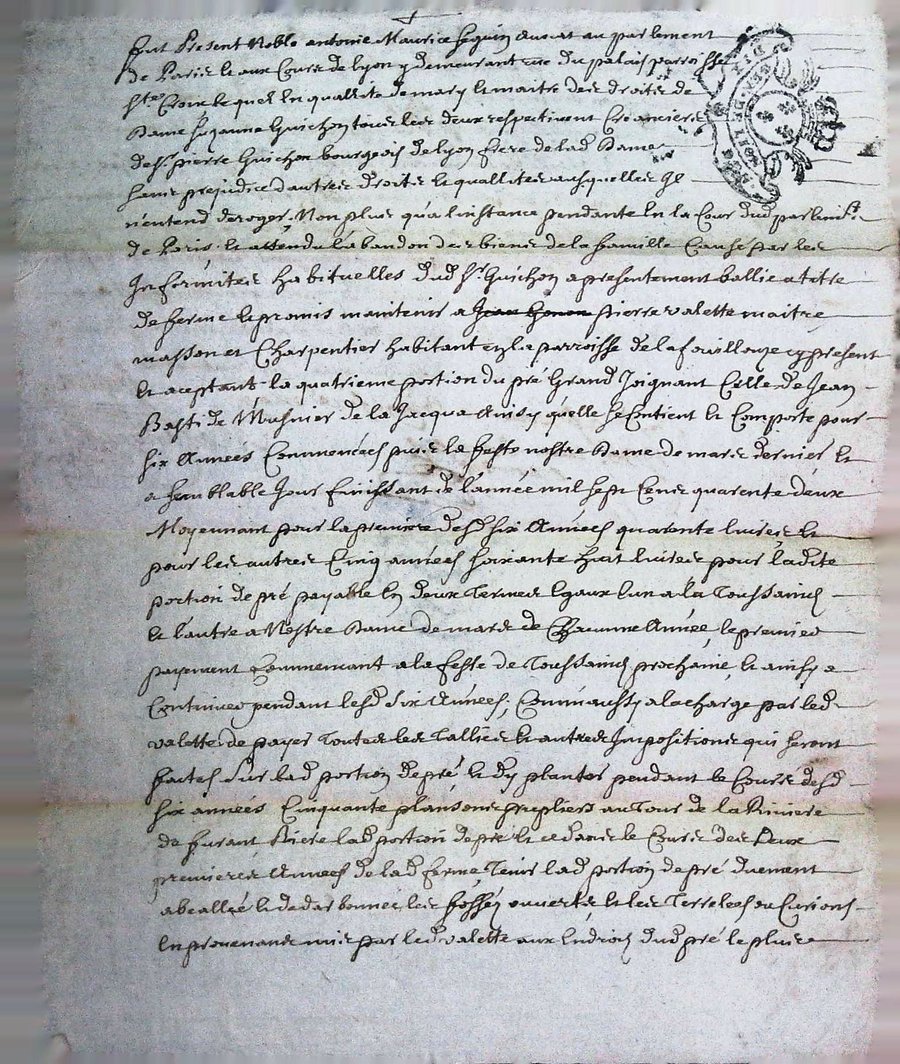 fut Present Noble antoine Maurice seguin avocat au parlement
de Paris et aux Cours de lyon y demeurant rue du palais parroisse
ste Croix lequel en quallité de mary et maitre des droits de
dame suzanne Guichon tous les deux respectivemt Creanciers
de sr pierre Guichon bourgeois de lyon frere de lad dame
sans prejudice d'autres droits et quallités ausquelles Il
n'entend deroger. Non plus qua linstance pendante En la Cour dud parlemt
de Paris et attendu labandon des biens de la famille Causé par les
Infirmites habituelles dud sr Guichon a presentement ballié a titre
de ferme et promis maintenir a pierre valette maitre
masson et Charpentier habitant en la parroisse de la fouillouze cy present
et aceptant la quatrieme portion du pré Grand Joignant Celle de Jean
Bapti de Musnier de la Jacqua ainsy quelle se Contient et Comporte pour
six années Commencées puis la feste nostre dame de mars dernier et
a semblable Jour finissant de lannée mil sept Cens quarente deux
Moyennant pour la premiere desd six années quarente livres et
pour les autres Cinq années soixante huit livres pour ladite
portion de pré payable En deux Termes Egaux lun a la Toussaincts
et lautre a Nostre dame de mars de Chacunne Année, le premier
payement Commencant a la feste de Toussaincts prochaine, et ainsy a
Continuer pendant lesd six années; Comme aussy a la charge par led
valette de payer Toutes les Tallies et autres Impositions qui seront
faites sur lad portion de pré et dy planter pendant le Cours desd
six années Cinquante plansons peupliers au Tour de la Riviere
de furant Riere lad portion de pré et ce dans le Cours des deux
premieres années de lad ferme Tenir lad portion de pré duement
abeallée et de darbonner les fossés ouverts et les Terrelées ou Curions
En provenans mis par led valette aux Endroits dud pré le plus